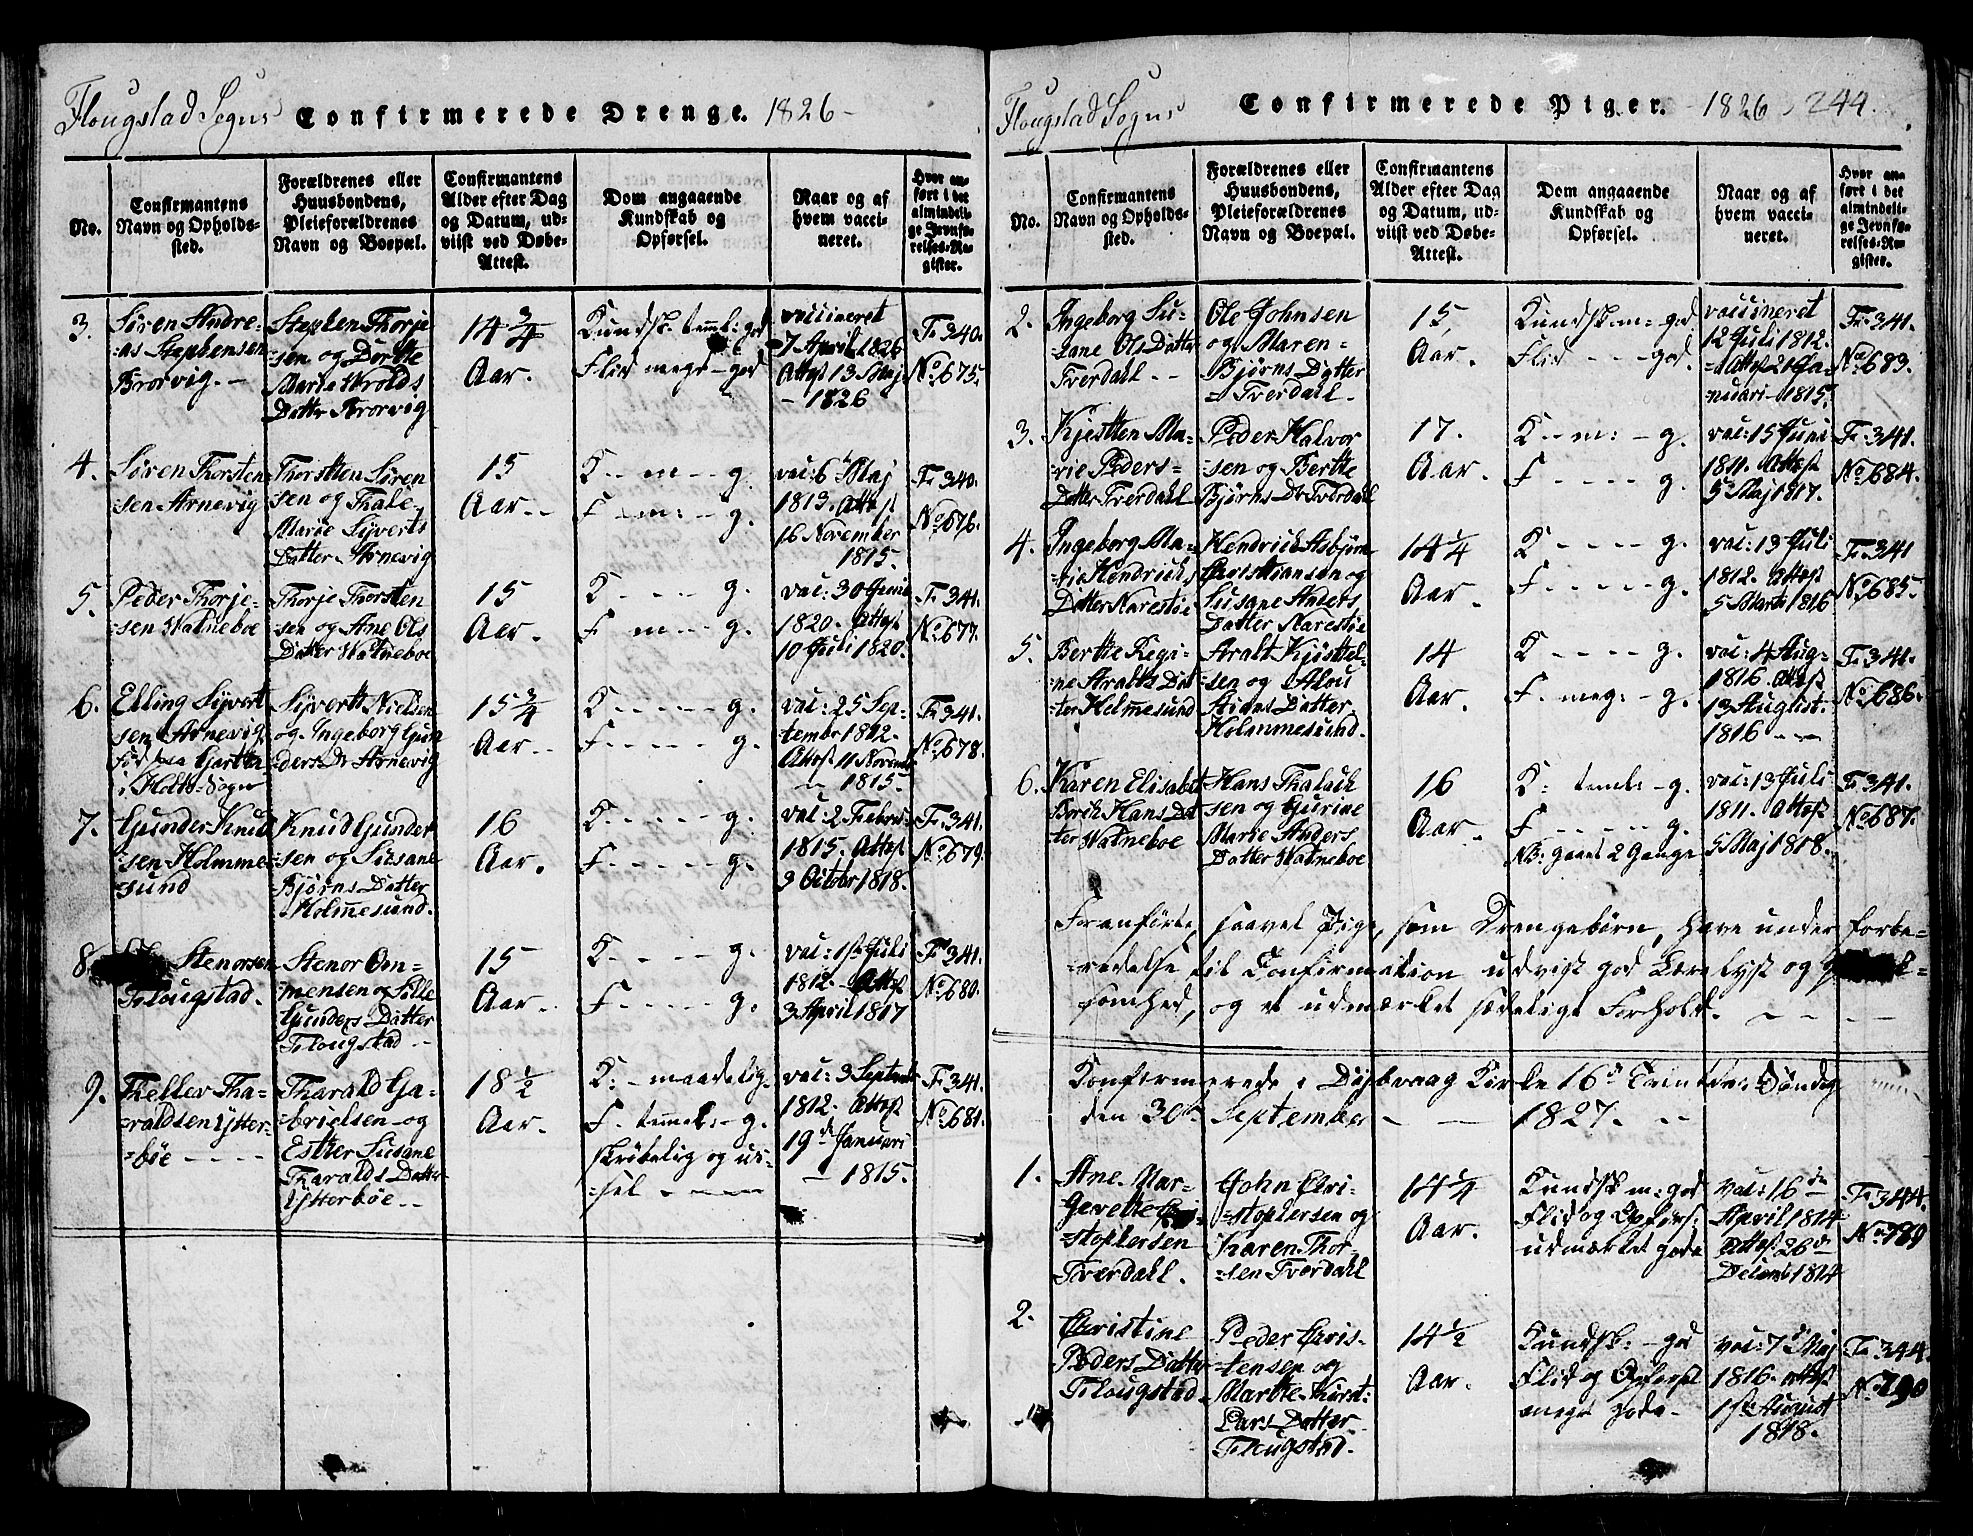 Flougstad Sogn
Confirmerede Drenge. 1826-
No.
Confirmantens
Navn og Opholds-
sted.
Forældrenes eller
Huusbondens,
Pleieforældrenes
Navn og Boepæl.
Confirmantens
Alder efter Dag
og Datum, ud-
viist ved Døbe-
Attest.
Dom angaaende
Kundskab og
Opførsel.
Naar og af
hvem vacci-
neret.
Hvor an-
ført i det
almindeli-
ge Jevnfø-
relses-Re-
gister.
3.
Søren Andre-
as Stephensen
Brorvig. -
Stephen Thorje
sen og Dorthe
Marie Wrolds
Datter Brorvig
14 3/4
Aar.
Kundsk. teml: god
Flid meget - god
vaccineret
7 April 1826
Attest 13 Maj
- 1826
F: 340.
No 675.
4.
Søren Thorsten
sen Arnevig
Thorstten Søren
sen og Thale
Marie Sijverts
Datter Arnevig
15
Aar. -
K - - m - - g.
F - m: - - g.
vac: 6 Maj
1813. Attest
16 November
1815.
F: 340.
No 676.
5.
Peder Thorje-
sen Walneboe
Thorje Thorsten
sen og Ane Ols
Datter Walneboe
15
Aar.
K - - - - g.
F m - - g.
vac: 30 Juni
1820. Attest
10 Juli 1820.
F: 341.
No 677.
6.
Elling Sijvert
sen Arnevig
i Holts Sogn
Sijvertt Nielsen
og Ingeborg Gun
ders Dr Arnevig
15 3/4
Aar. -
K - - - - - g.
F - - - - g.
vac: 25 Sep-
tember 1812.
Attest 11 Novemb
- 1815.
F: 341.
No 678.
7.
Gunder Knud
sen Holmme-
sund
Knud Gunder
sen og Susane
Bjørns Datter
Holmesund.
16
Aar.
K - - - - - g.
F - - - - - g.
vac: 2 Febru-
1815. Attest
9 Octobr 1818.
F: 341.
No 679.
8.
Stenorsen
Flougstad.
Stenor Om-
mensen og Sille
Gunders Datter
Flougstad - -
15
Aar. -
K - - - - g.
F - - - - g.
vac: 1ste Juli
1812. Attest
3 April 1817
F: 341.
No 680.
9.
Theller Tha-
raldsen Ytter-
bøe - - - -
Tharald Ga-
brielsen og
Esther Susane
Tharalds Datter
Ytterbøe - -
18 1/2
Aar.
K: - maadelig
F. temel: - g.
skrøbelig og us-
sel - - -
vac: 3 Septemb
1812. Attest
19de Januari
- 1815.
F: 341.
No 681.
Flougstad Sogn
Confirmerede Piger. - 1826 244.
No.
Confirmantens
Navn og Opholds-
sted.
Forældrenes eller
Huusbondens,
Pleieforældrenes
Navn og Boepæl.
Confirmantens
Alder efter Dag
og Datum, ud-
viist ved Døbe-
Attest.
Dom angaaende
Kundskab og
Opførsel.
Naar og af
hvem vacci-
neret.
Hvor an-
ført i det
almindeli-
ge Jevnfø-
relses-Re-
gister.
2.
Ingeborg Su-
sane Ols Datter
Tverdall. - -
Ole Johnsen
og Maren
Bjørns Datter
Tverdall.
15,
Aar.
Kundsk. m: god
Flid - - - god.
vaccineret
12 Juli 1812.
Attest 21 Ja-
nuari - 1815.
F: 341.
No 683.
3.
Kjestten Ma-
rie Peders-
Datter Tverdall
Peder Halvor
sen og Berthe
Bjørns Dr Tverdall
17.
Aar.
K - - m: - g.
F - - - - g.
vac: 15 Juni
1811. Attest
5 Maj 1817.
F: 341.
No 684.
4.
Ingeborg Ma-
rie Hendrichs
Datter Narestøe
Hendrich Asbjørn
Christiansen og
Susane Anders
Datter Narestøe
14 1/4
Aar.
K - - - - g.
F - - - - - g.
vac: 13 Juli
1812. Attest
5 Marti 1816
F: 341
No 685.
5.
Berthe Regi-
ne Aralts Dat
ter Holmesund
Aralt Kjøstel-
sen og
Datter
Holmmesund.
14
Aar.
K - - - - g.
F. meg: - g.
vac: 4 Aug-
1816. Attest
13 August.
1816 - -
F: 341.
No 686.
6.
Karen Elisabet
Hans Dat
ter Walneboe
Hans Thalach
sen og Gurine
Marie Anders
Datter Walneboe
16
Aar.
K: teml: - g.
F - - - - - g.
NB: gaaet 2 Gange
vac: 13 Juli
1811. Attest
5 Maj 1818.
F: 341.
No 687.
Foranførte, saavel Pige, som Drengebørn, have under Forbe-
redelse til Confirmation udvist god Lærelyst og
somhed, og et udmærket sædeligt Forhold. - - - -
Konfirmerede i Dybvaag Kirke 16de Trinit: Søndag
den 30te September - - 1827. - -
1.
Ane Mar-
gerette Chri-
stophersen
Tverdall.
John Chri-
stophersen og
Karen Thor-
sen Tverdall
14 1/4
Aar.
Kundsk m: god
Flid og Opførs:
udmærket gode
vac: 16de
April 1814
Attest 26de
Decemb 1814
F: 344.
No 789
2.
Christine
Peders Datter
Flougstad
Peder Chris-
tensen og
Marthe Kirst:
Lars Datter
Flougstad.
14 1/2
Aar.
Kundsk: - god
Flid og Opførsel
meget gode -
vac: 7de Maj
1816. Attest
1ste August
1818.
F: 344.
No 790